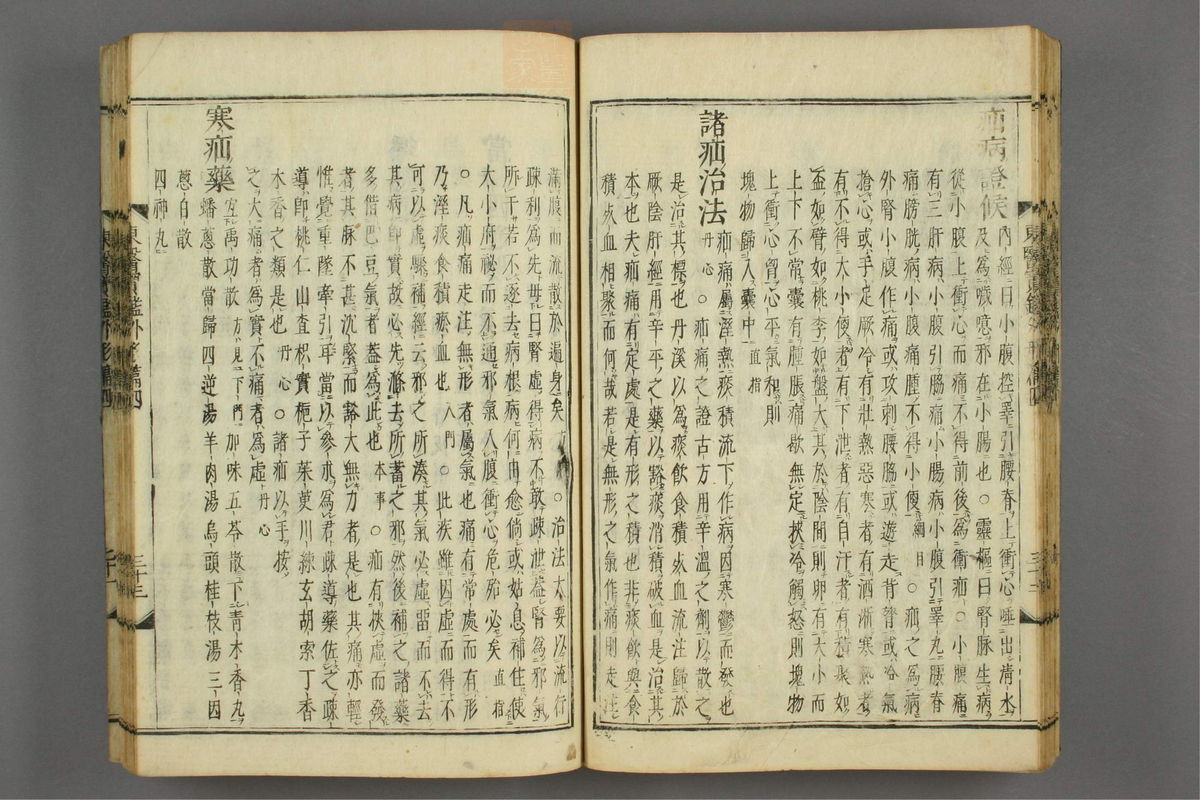 疝病證候
內經曰小腹控睪引腰脊上衝心唾出淸水
及爲噦噫邪在小腸也○靈樞曰腎脉生病
從小腹上衝心而痛不得前後爲衝疝○小腹痛
有三肝病小腹引脇痛小腸病小腹引睪丸腰脊
痛膀胱病小腹痛腫不得小便綱目○疝之爲病
外腎小腹作痛或攻刺腰脇或遊走背膂或冷氣
搶心或手足厥冷有壯熱惡寒者有洒淅寒熱者
有不得大小便者有下泄者有自汗者有積聚如
盃如臂如桃李如盤大其於陰間則卵有大小而
上下不常囊有腫脹痛歇無定挾冷觸怒則塊物
上衝心胷心平氣和則
塊物歸入囊中直指
諸疝治法
疝痛屬濕熱痰積流下作病因寒鬱而發也
丹心○疝痛之證古方用辛溫之劑以散之
是治其標也丹溪以爲痰飮食積死血流注歸於
厥陰肝經用辛平之藥以豁痰消積破血是治其
本也夫疝痛有定處是有形之積也非痰飮與食
積死血相聚而何哉若是無形之氣作痛則走注
滿腹而流散於遍身矣方○治法大要以流行
疎利爲先毋曰腎虛得病不敢疎泄盖腎爲邪氣
所干若不逐去病根病何由愈倘或姑息補住使
大小府祕而不通邪氣入腹衝心危殆必矣直指
○凡疝痛走注無形者屬氣也痛有常處而有形
乃濕痰食積瘀血也入門○此疾雖因虛而得不
可以虛驟補經云邪之所湊其氣必虛留而不去
其病即實故必先滌去所蓄之邪然後補之諸藥
多借巴豆氣者盖爲此也本事○疝有挾虛而發
者其脉不甚沈緊而豁大無力者是也其痛亦輕
惟覺重墜牽引耳當以參朮爲君疎導藥佐之疎
導即桃仁山査枳實梔子茱萸川練玄胡索丁香
木香之類是也丹心○諸疝以手按
之大痛者爲實不痛者爲虛丹心
寒疝藥
宜禹功散方見下門加味五苓散下靑木香丸
蟠葱散當歸四逆湯羊肉湯烏頭桂枝湯三因
葱白散
四神丸